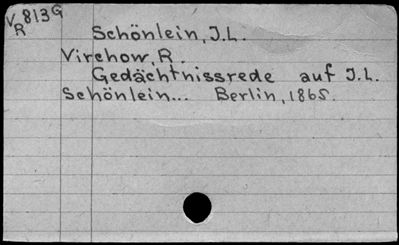 V 813 G
R
Schönlein, J.L.
Virchow, R.
Gedächtnissrede auf J.L.
Schönlein... Berlin, 1865.